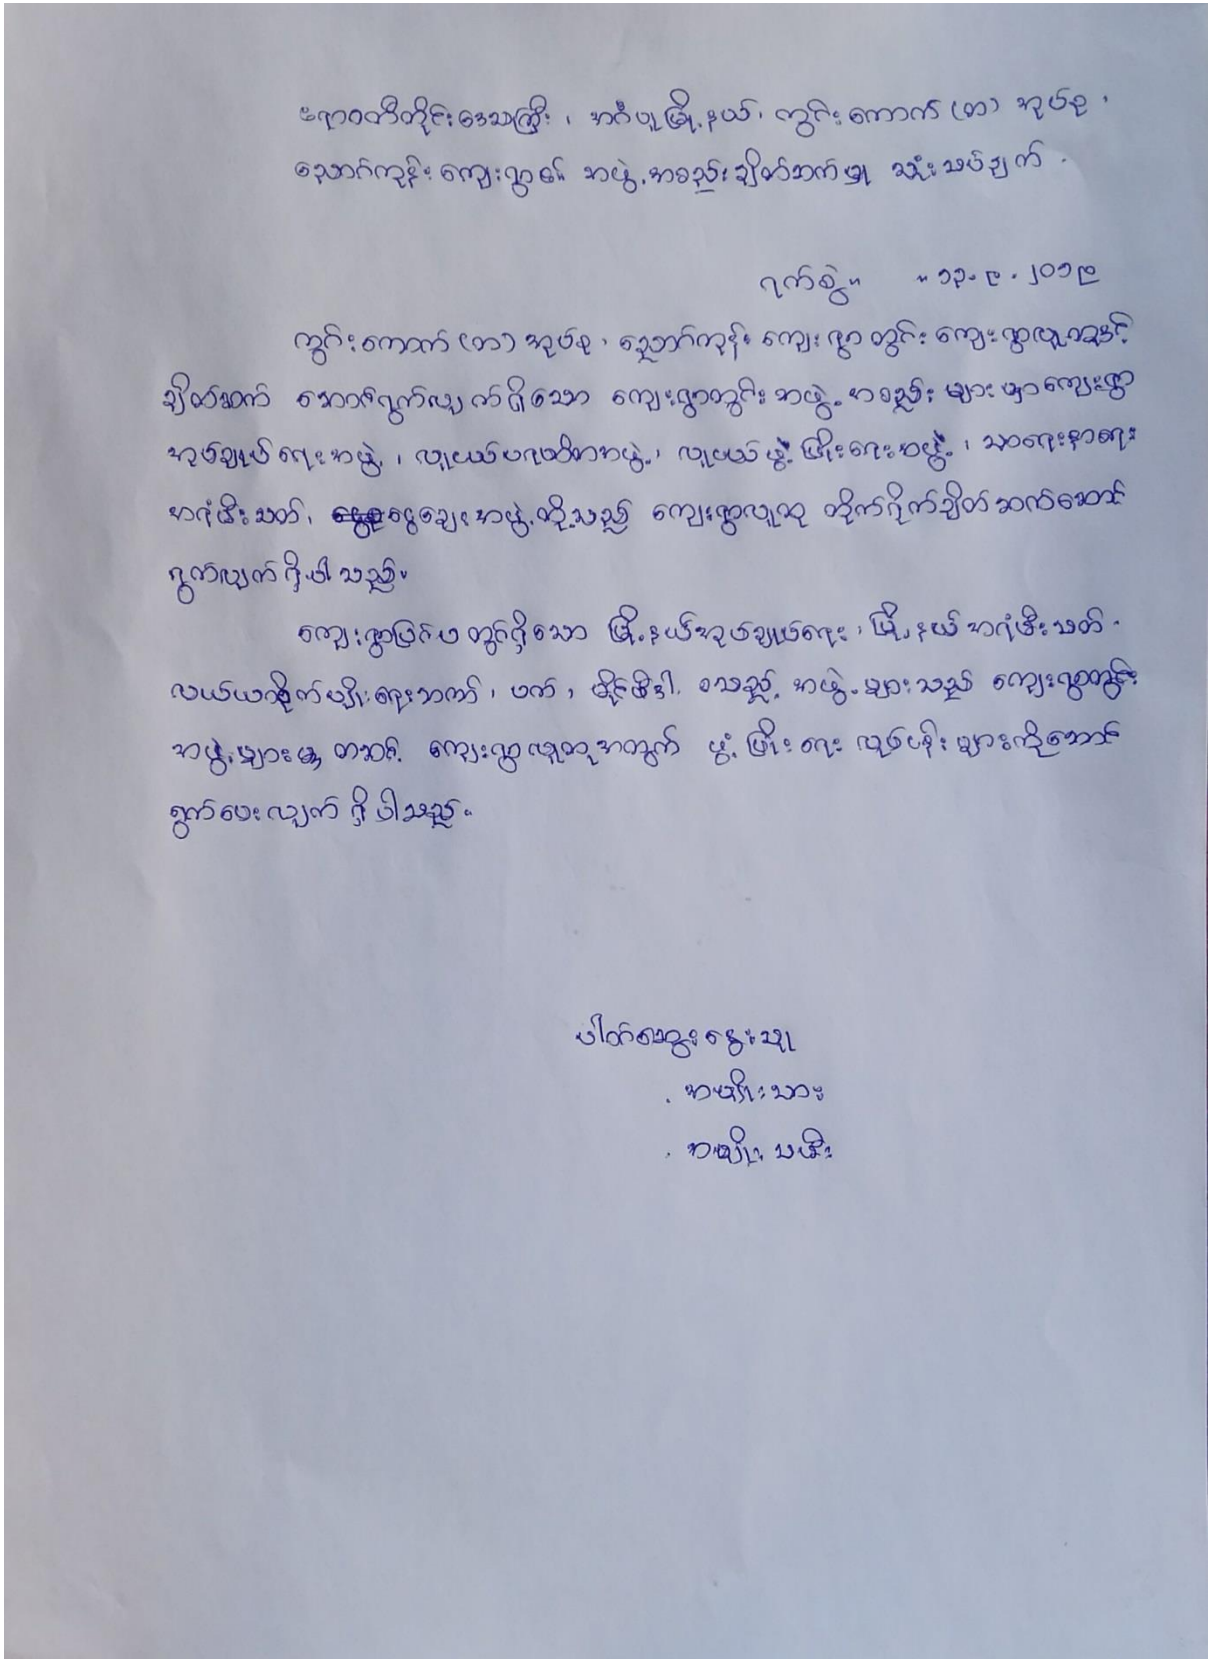 ဧရာဝတီတိုင်းဒေသကြီး၊ အင်္ဂပူမြို့နယ်၊ ကွင်းကောက် (တ) အုပ်စု၊
ညောင်ကုန်းကျေးရွာ၏ အဖွဲ့အစည်းချိတ်ဆက်မှု သုံးသပ်ချက်။
ရက်စွဲ။ ။၁၃.၉.၂၀၁၉
ကွင်းကောက် (တ) အုပ်စု၊ ညောင်ကုန်း ကျေးရွာ တွင်း ကျေးရွာလူထုနှင့်
ချိတ်ဆက် ဆောင်ရွက်လျှက်ရှိသော ကျေးရွာတွင်း အဖွဲ့အစည်း များမှာ ကျေးရွာ
အုပ်ချုပ်ရေးအဖွဲ့၊ လူငယ်ပရဟိတအဖွဲ့၊ လူငယ်ဖွံ့ဖြိုးရေးအဖွဲ့၊ သာရေးနာရေး
အရံမီးသတ်၊ ငွေချေးအဖွဲ့တို့သည် ကျေးရွာလူထု တိုက်ရိုက်ချိတ်ဆက်ဆောင်
ရွက်လျှက်ရှိပါသည်။
ကျေးရွာပြင်ပတွင်ရှိသော မြို့နယ်အုပ်ချုပ်ရေး၊ မြို့နယ် အရံမီးသတ်၊
လယ်ယာစိုက်ပျိုးရေးဘဏ်၊ ပက်၊ မိုင်မီဒါ စသည့် အဖွဲ့များသည် ကျေးရွာတွင်း
အဖွဲ့များမှ တဆင့် ကျေးရွာလူထုအတွက် ဖွံ့ဖြိုးရေး လုပ်ငန်းများကိုဆောင်
ရွက်ပေးလျှက်ရှိပါသည်။
ပါဝင်ဆွေးနွေးသူ
. အမျိုးသား
. အမျိုးသမီး